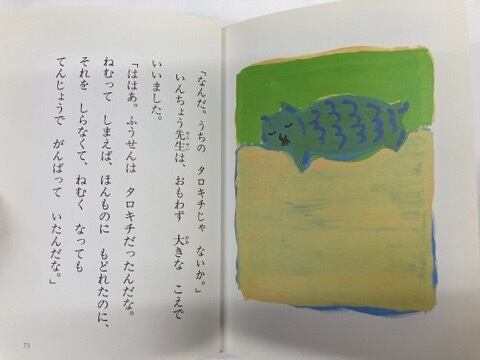 「なんだ。うちの タロキチじゃ ないか。」
いんちょう先生は、おもわず 大きな こえで
いいました。
「ははあ。ふうせんは タロキチだったんだな。
ねむって しまえば、ほんものに もどれたのに、
それを しらなくて、ねむく なっても
てんじょうで がんばって いたんだな。」
73